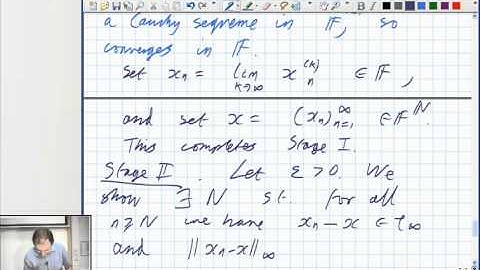 a Cauchy sequence in 𝔽, so
converges in 𝔽.
Set xₙ = lim_{k→∞} xₙ^{(k)} ∈ 𝔽,
and set x = (xₙ)_{n=1}^∞ ∈ 𝔽^ℕ.
This completes Stage I.
Stage II. Let ε > 0. We
show ∃ N s.t. for all
n ≥ N we have xₙ − x ∈ ℓ_∞
and ‖xₙ − x‖_∞